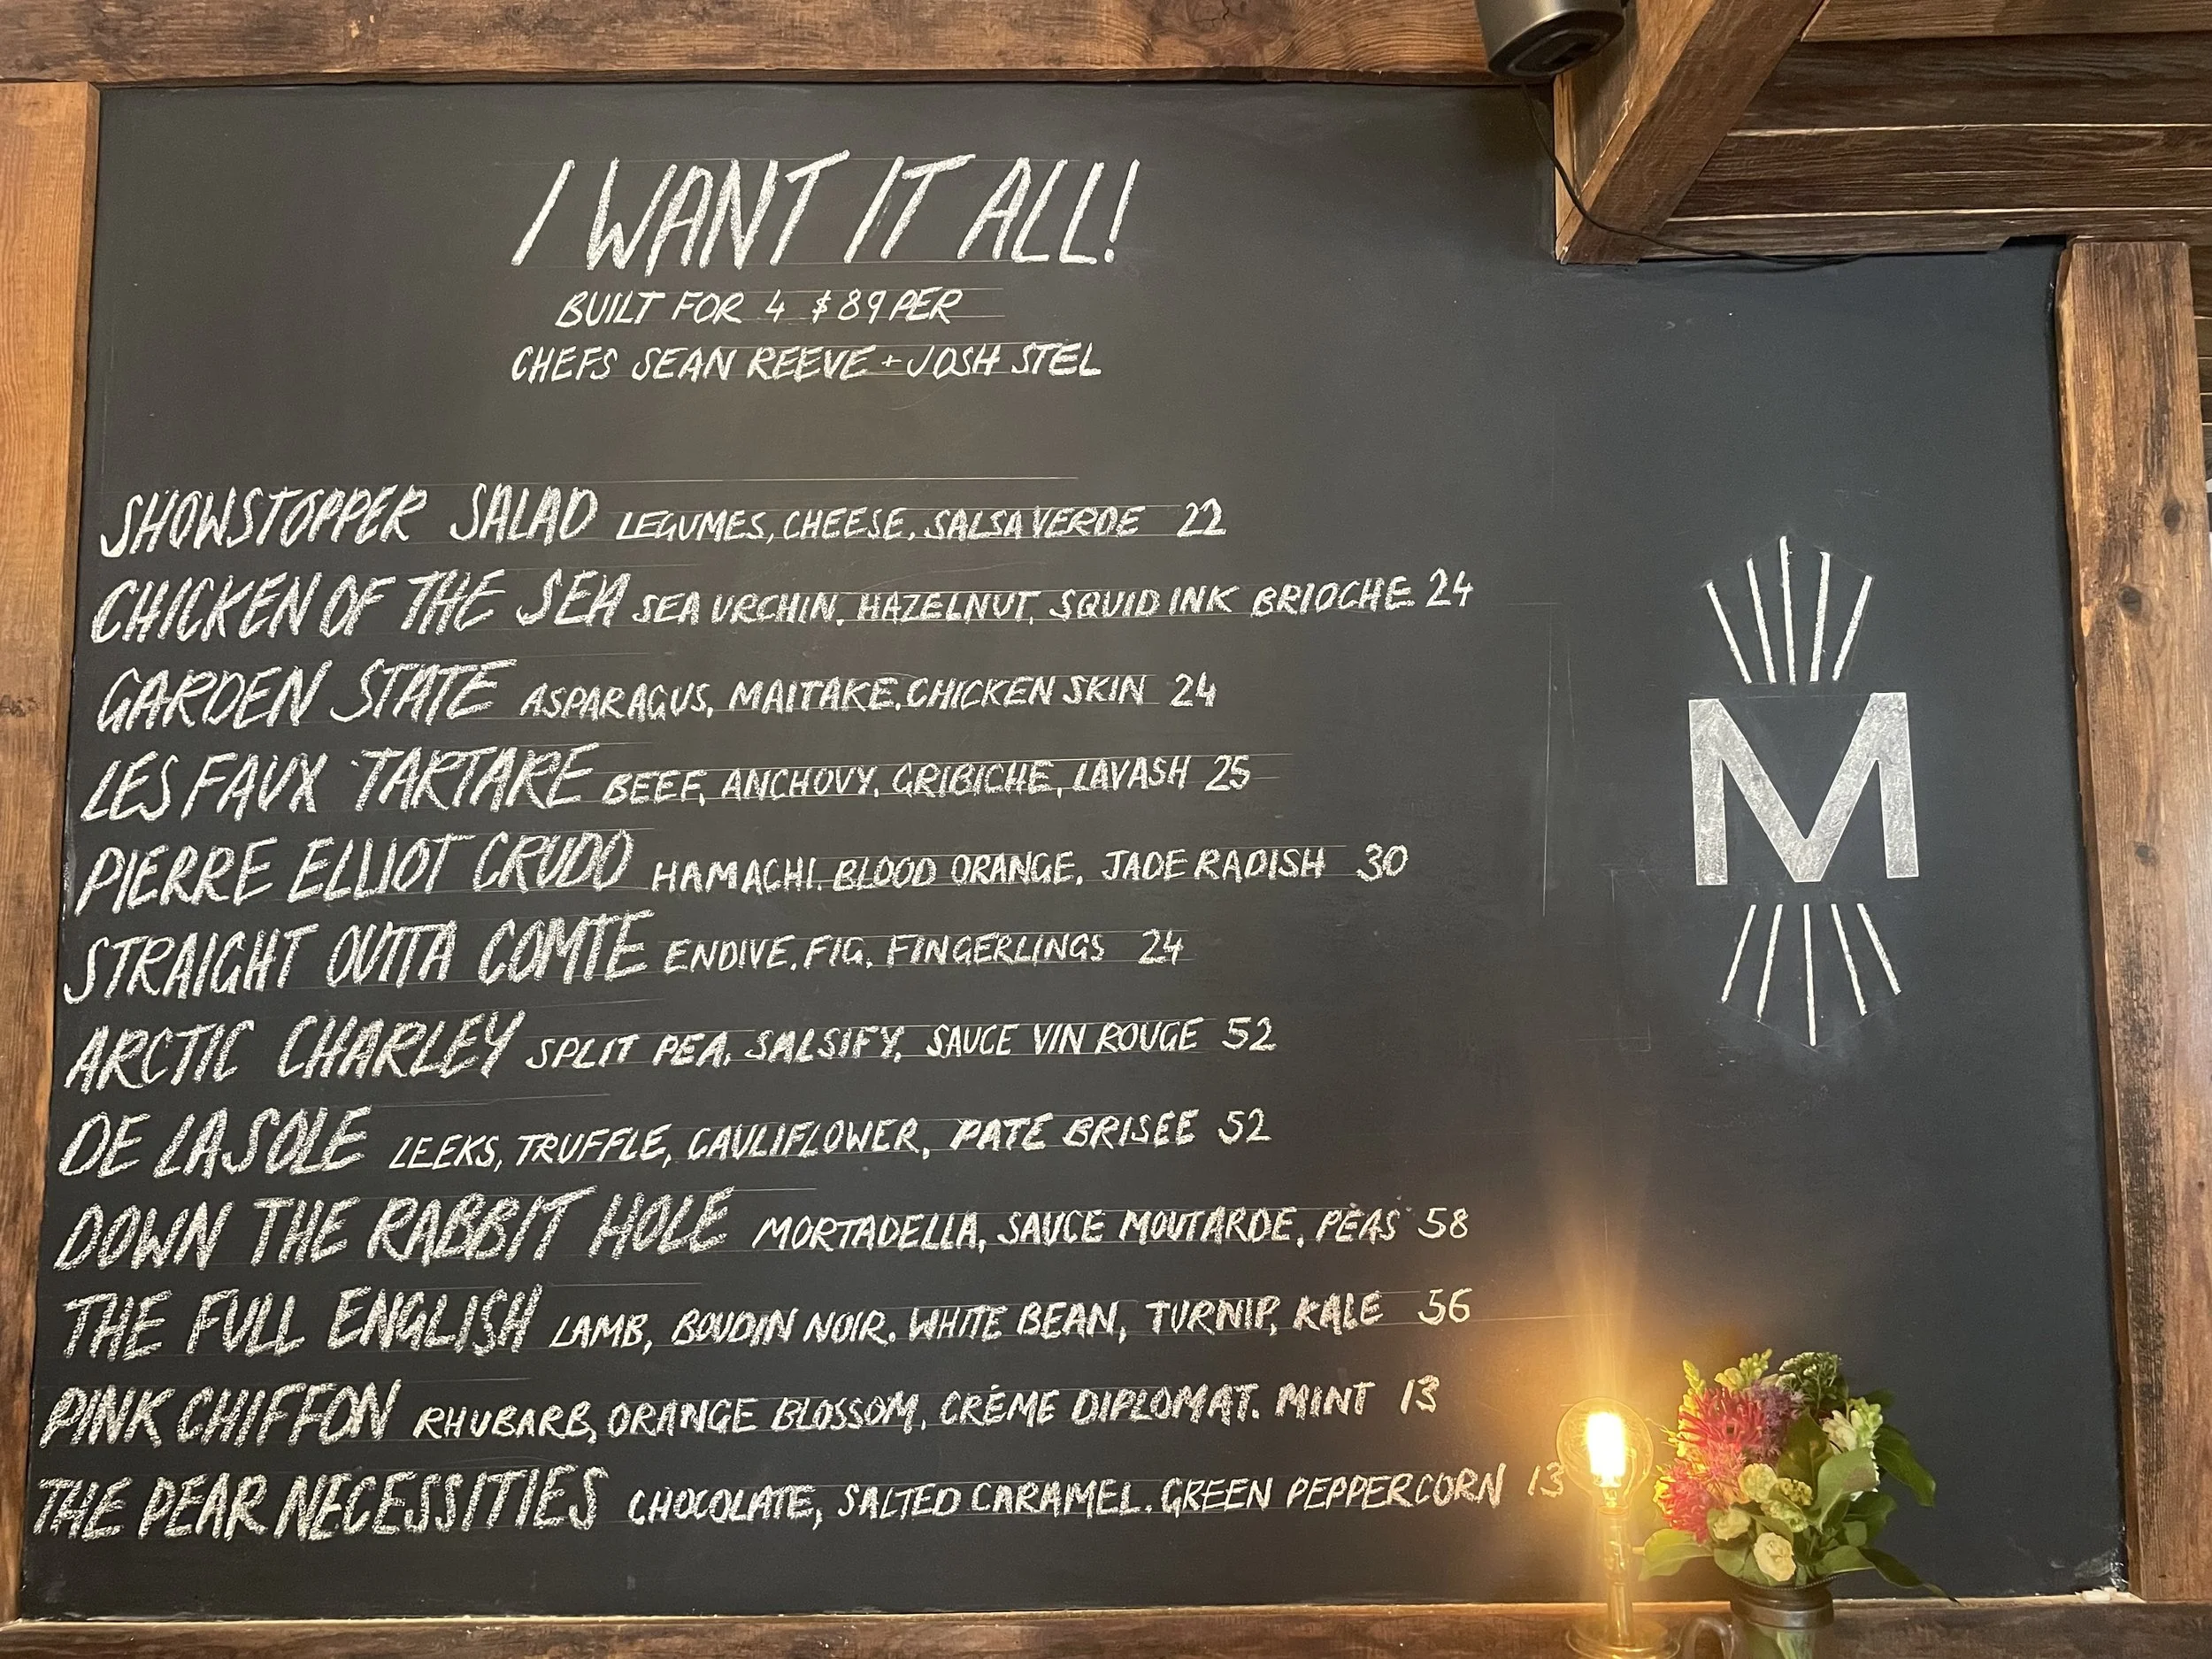 I WANT IT ALL!
BUILT FOR 4 $89 PER
CHEFS SEAN REEVE + JOSH STEL
SHOWSTOPPER SALAD LEGUMES, CHEESE, SALSA VERDE 22
CHICKEN OF THE SEA SEA URCHIN, HAZELNUT, SQUID INK BRIOCHE 24
GARDEN STATE ASPARAGUS, MAITAKE, CHICKEN SKIN 24
LES FAUX TARTARE BEEF, ANCHOVY, GRIBICHE, LAVASH 25
PIERRE ELLIOT CRUDO HAMACHI, BLOOD ORANGE, JADE RADISH 30
STRAIGHT OUTTA COMTE ENDIVE, FIG, FINGERLINGS 24
ARCTIC CHARLEY SPLIT PEA, SALSIFY, SAUCE VIN ROUGE 52
DE LA SOLE LEEKS, TRUFFLE, CAULIFLOWER, PATE BRISEE 52
DOWN THE RABBIT HOLE MORTADELLA, SAUCE MOUTARDE, PEAS 58
THE FULL ENGLISH LAMB, BOUDIN NOIR, WHITE BEAN, TURNIP, KALE 56
PINK CHIFFON RHUBARB, ORANGE BLOSSOM, CRÈME DIPLOMAT, MINT 13
THE PEAR NECESSITIES CHOCOLATE, SALTED CARAMEL, GREEN PEPPERCORN 13
M